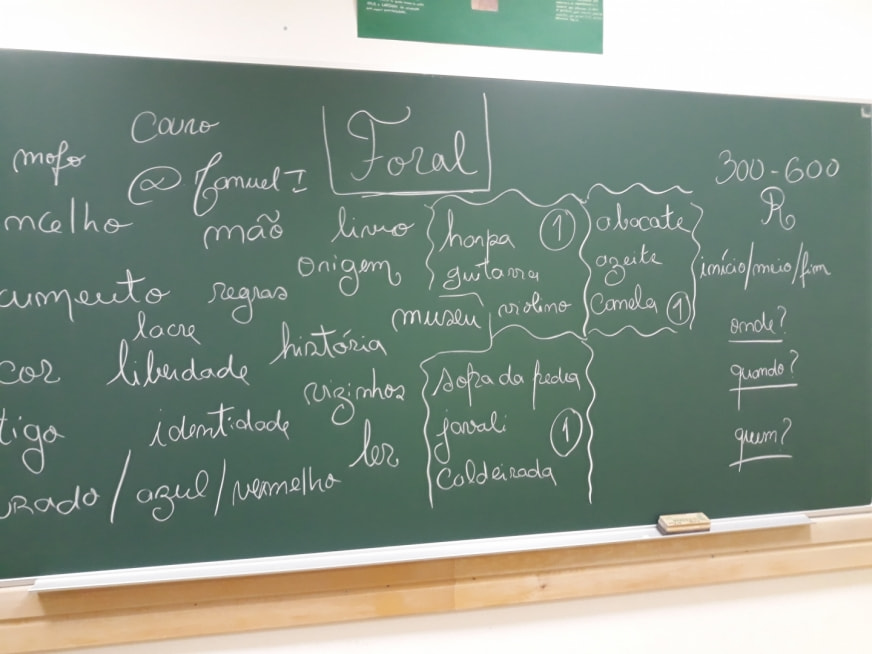 Foral
couro
mofo
@ Manuel I
ncelho
mão
livro
origem
umento
regras
lacre
museu
história
cor
liberdade
vizinhos
tigo
identidade
ler
rado / azul / vermelho
harpa
guitarra
violino
1
abacate
azeite
canela
1
sopa da pedra
javali
caldeirada
1
300-600
R
início/meio/fim
onde?
quando?
quem?